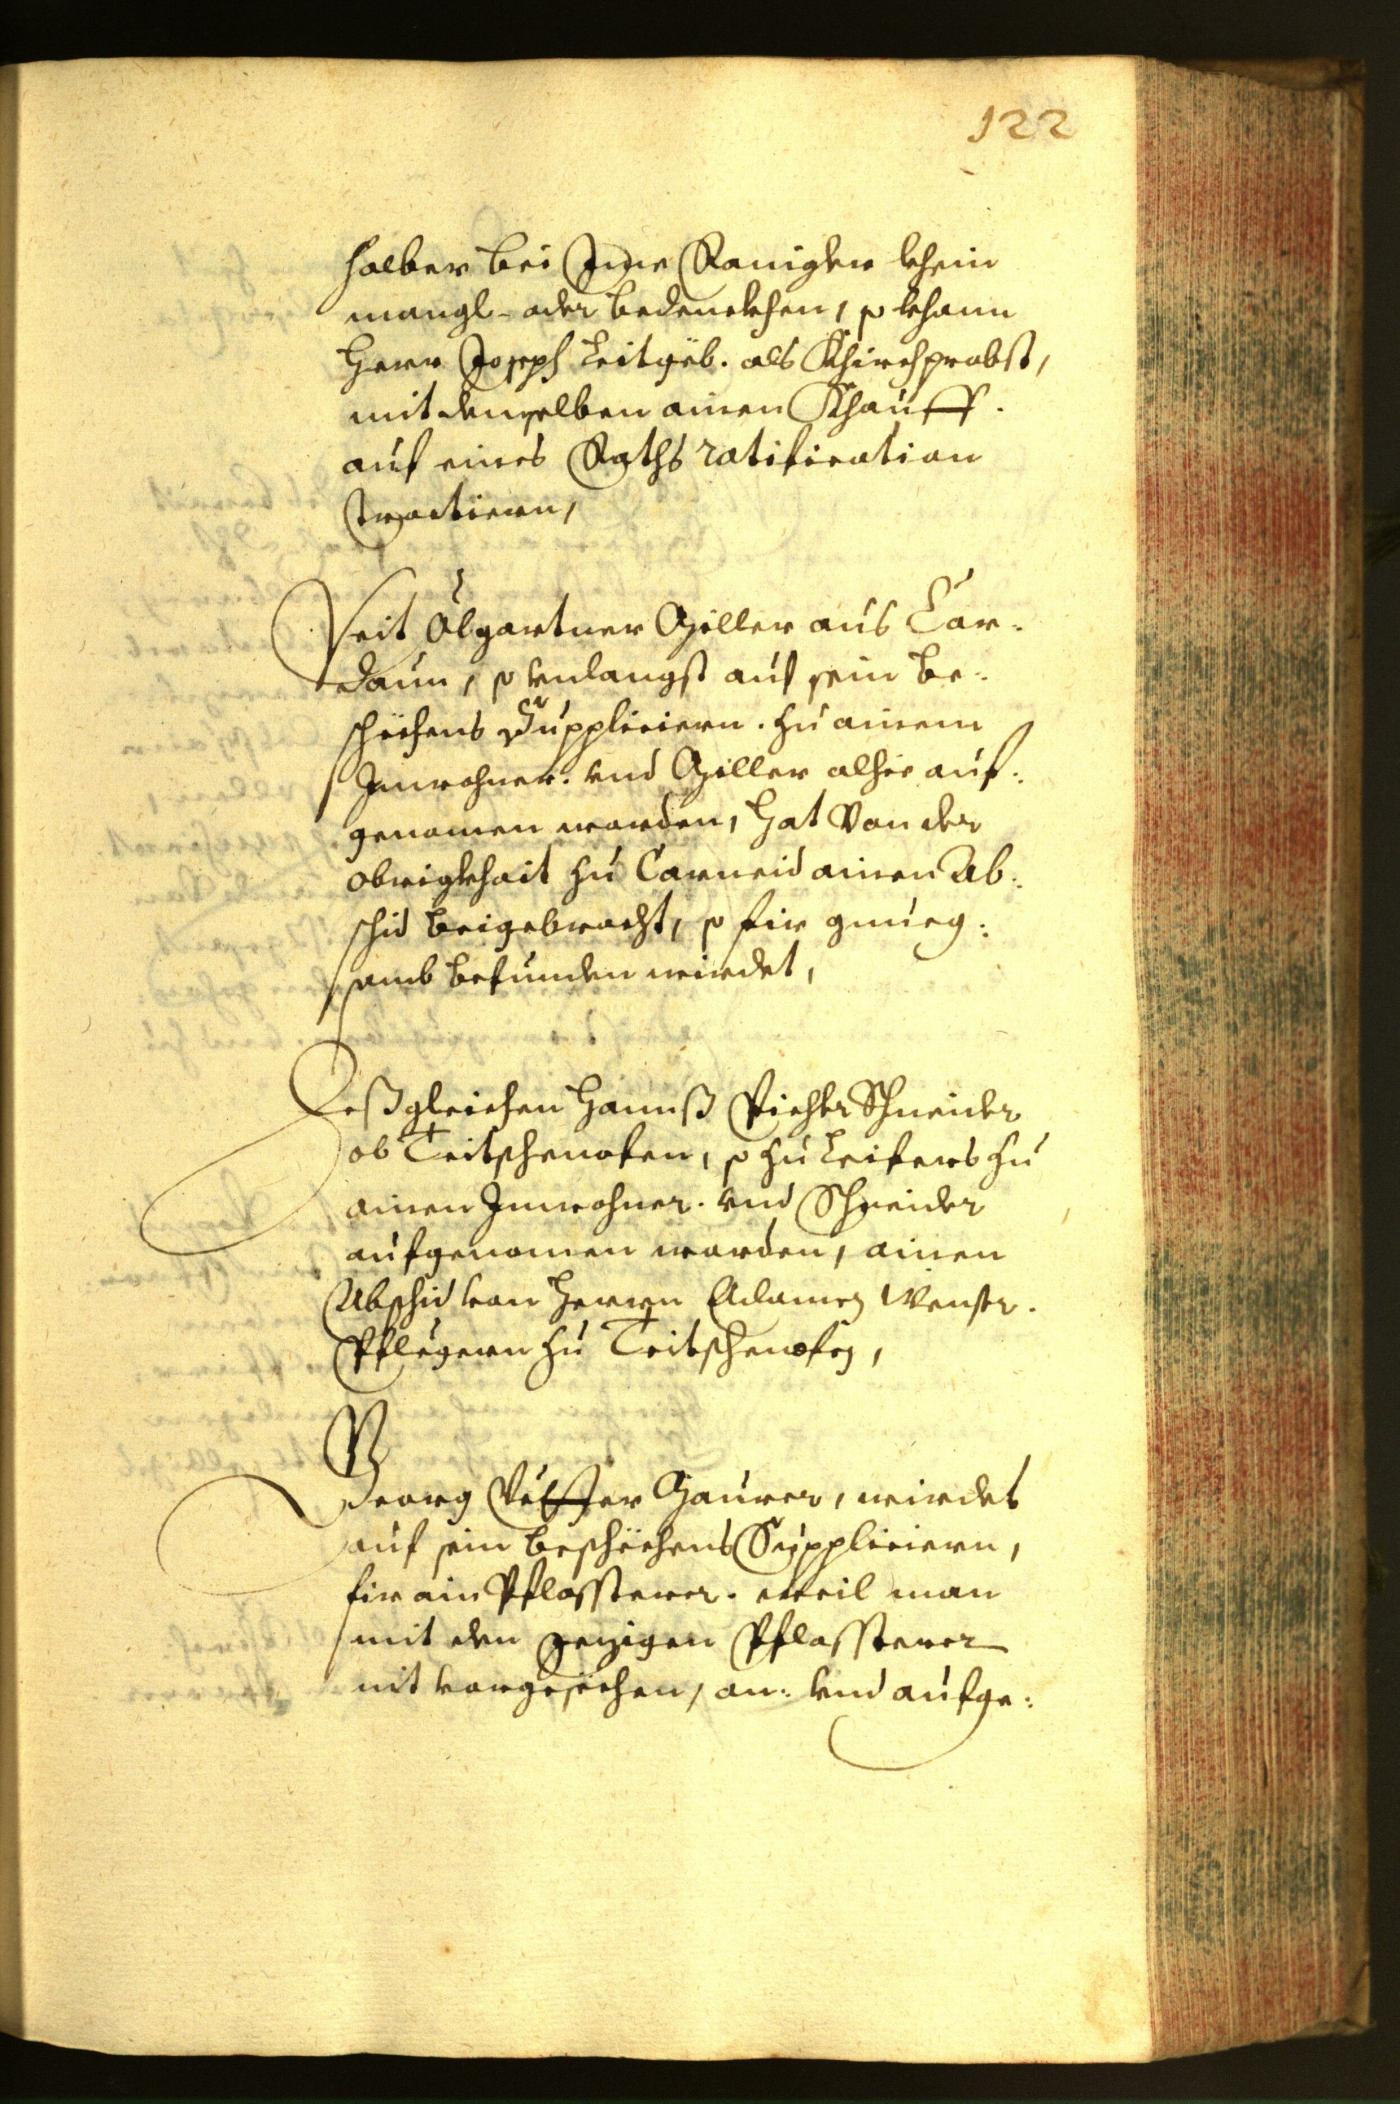 122
halber bei Ime Ranigler khein
mangl- oder bedenckhen, so khann
Herr Joseph Leitgëb. als Khirchprobst,
mit demselben ainen Khauff.
auf eines Raths ratification
tractiern,
Veit Ölgartner Miller aus Car-
daun, so unlangst auf sein be-
schechens Suppliciern. zu ainem
Innwohner. und Miller alhie auf-
genomen worden, hat von der
obrigkhait zu Carneid ainen Ab-
schid beigebracht, so fir gnueg-
samb befunden wirdet,
Deßgleichen Hannß Pichler Schneider
ob Teitschenofen, so zu Leifers zu
ainen Innwohner. und Schneider
aufgenomen worden, ainen
Abschid von Herrn Adamen Wenser.
Pflegern zu Teitschenofen,
Georg Maurer, wirdet
auf sein beschechens Suppliciern,
fir ain Pflassterer. weil man
mit den jezigen Pflassterer
nit vorgesechen, an- und aufge-